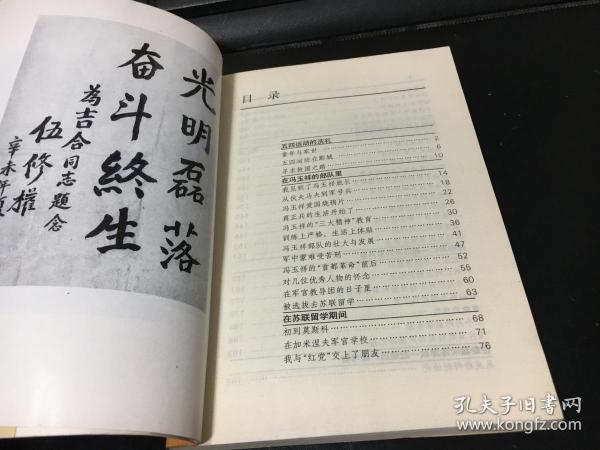 光明磊落
奋斗終生
為吉合同志題念
伍修權
辛未年夏
目录
五四运动的洗礼
童年与家世 2
五四运动在郾城 6
寻求救国之路 10
在冯玉祥的部队里
我见到了冯玉祥旅长 14
从伙夫马夫到军号兵 18
冯玉祥爱国烧祸片 22
真正兵的生活开始了 26
冯玉祥的“三大精神”教育 30
训练上严格，生活上体贴 36
冯玉祥部队的壮大与发展 41
军中蒙难受苦刑 47
冯玉祥的“首都革命”前后 52
对几位优秀人物的怀念 55
在军官教导团的日子里 60
被选拔去苏联留学 63
在苏联留学期间
初到莫斯科 68
在加米涅夫军官学校 71
我与“红党”交上了朋友 76
孔夫子旧书网
www.kongfz.com